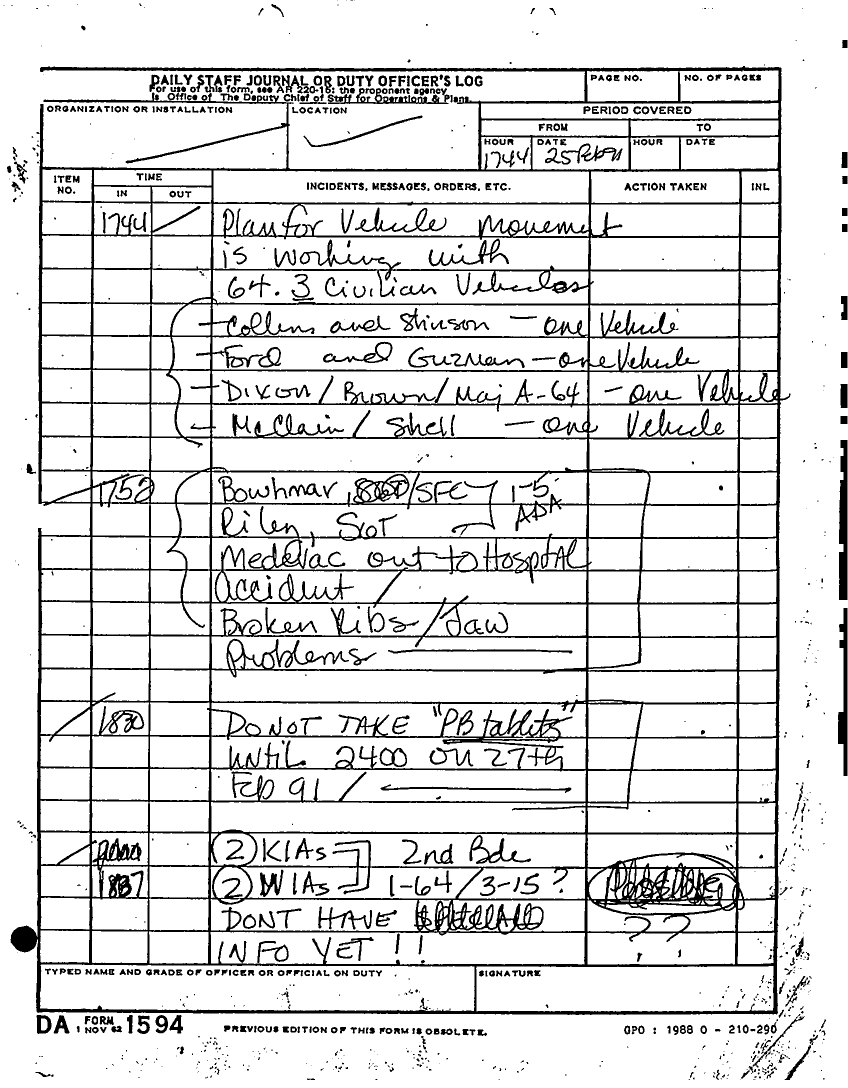 DAILY STAFF JOURNAL OR DUTY OFFICER'S LOG
For use of this form, see AR 220-15; the proponent agency
is Office of The Deputy Chief of Staff for Operations & Plans.
PAGE NO.
NO. OF PAGES
ORGANIZATION OR INSTALLATION
LOCATION
PERIOD COVERED
FROM
TO
HOUR
1744
DATE
25 Feb 91
HOUR
DATE
ITEM NO.
TIME
IN
OUT
INCIDENTS, MESSAGES, ORDERS, ETC.
ACTION TAKEN
INL
1744 Plan for Vehicle Movement
is working with
64. 3 Civilian Vehicles
- Collins and Stinson - one Vehicle
- Ford and Guzman - one Vehicle
- Dixon / Brown / Maj A-64 - one Vehicle
- McClain / Shell - one Vehicle
1752 Bowhmar, /SFC 1-5
Riley, SGT ADA
Medevac out to Hospital
Accident /
Broken Ribs / Jaw
Problems
1830 DO NOT TAKE "PB tablets"
UNTIL 2400 ON 27th
Feb 91 /
2 KIAs 2nd Bde
1837 2 WIAs 1-64 / 3-15 ?
DONT HAVE ??
INFO YET !!
TYPED NAME AND GRADE OF OFFICER OR OFFICIAL ON DUTY
SIGNATURE
DA FORM 1 NOV 62 1594
PREVIOUS EDITION OF THIS FORM IS OBSOLETE.
GPO : 1988 O - 210-290